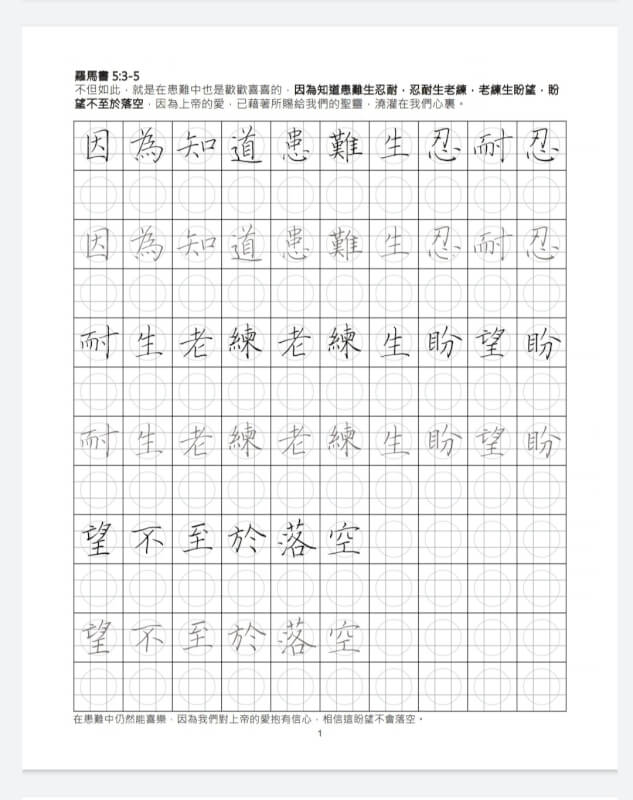 羅馬書 5:3-5
不但如此，就是在患難中也是歡歡喜喜的，因為知道患難生忍耐，忍耐生老練，老練生盼望，盼
望不至於落空，因為上帝的愛，已藉著所賜給我們的聖靈，澆灌在我們心裏。
因為知道患難生忍耐忍
因為知道患難生忍耐忍
耐生老練老練生盼望盼
耐生老練老練生盼望盼
望不至於落空
望不至於落空
在患難中仍然能喜樂，因為我們對上帝的愛抱有信心，相信這盼望不會落空。
1